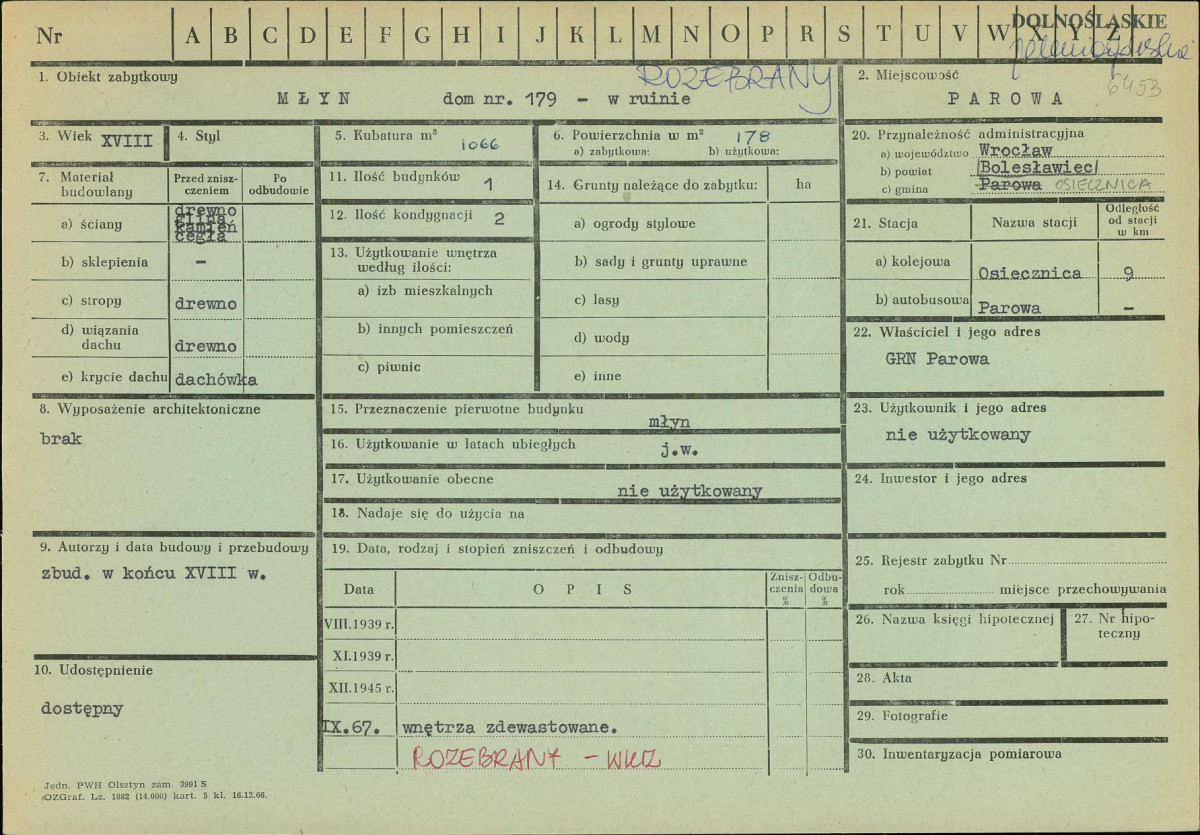 Nr A B C D E F G H I J K L M N O P R S T U V W X Y Z
DOLNOŚLĄSKIE
1. Obiekt zabytkowy
ROZEBRANY
MŁYN dom nr. 179 - w ruinie
2. Miejscowość
6453
PAROWA
3. Wiek XVIII
4. Styl
5. Kubatura m³
1066
6. Powierzchnia w m² 178
a) zabytkowa: b) użytkowa:
20. Przynależność administracyjna
a) województwo Wrocław
b) powiat Bolesławiec
c) gmina Parowa OSIECZNICA
7. Materiał budowlany
Przed znisz-
czeniem
Po
odbudowie
a) ściany
drewno
glina
kamień
cegła
b) sklepienia -
c) stropy drewno
d) wiązania
dachu drewno
e) krycie dachu dachówka
11. Ilość budynków 1
12. Ilość kondygnacji 2
13. Użytkowanie wnętrza
według ilości:
a) izb mieszkalnych
b) innych pomieszczeń
c) piwnic
14. Grunty należące do zabytku: ha
a) ogrody stylowe
b) sady i grunty uprawne
c) lasy
d) wody
e) inne
21. Stacja
Nazwa stacji
Odległość
od stacji
w km
a) kolejowa Osiecznica 9
b) autobusowa Parowa -
22. Właściciel i jego adres
GRN Parowa
8. Wyposażenie architektoniczne
brak
15. Przeznaczenie pierwotne budynku
młyn
16. Użytkowanie w latach ubiegłych
j.w.
17. Użytkowanie obecne
nie użytkowany
18. Nadaje się do użycia na
23. Użytkownik i jego adres
nie użytkowany
24. Inwestor i jego adres
9. Autorzy i data budowy i przebudowy
zbud. w końcu XVIII w.
19. Data, rodzaj i stopień zniszczeń i odbudowy
Data
OPIS
Znisz-
czenia
%
Odbu-
dowa
%
VIII.1939 r.
XI.1939 r.
XII.1945 r.
IX.67. wnętrza zdewastowane.
ROZEBRANY - WKZ
25. Rejestr zabytku Nr
rok miejsce przechowywania
26. Nazwa księgi hipotecznej
27. Nr hipo-
teczny
28. Akta
29. Fotografie
30. Inwentaryzacja pomiarowa
10. Udostępnienie
dostępny
Jedn. PWH Olsztyn zam. 3991 S
OZGraf. Lz. 1882 (14.000) kart. 5 kl. 16.12.66.